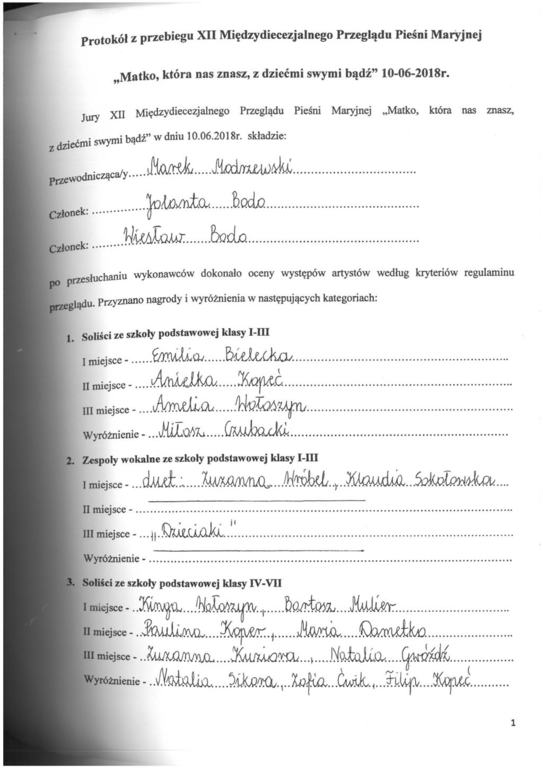 Protokół z przebiegu XII Międzydiecezjalnego Przeglądu Pieśni Maryjnej
„Matko, która nas znasz, z dziećmi swymi bądź” 10-06-2018r.
Jury XII Międzydiecezjalnego Przeglądu Pieśni Maryjnej „Matko, która nas znasz,
z dziećmi swymi bądź” w dniu 10.06.2018r. składzie:
Przewodnicząca/y.....Marek Modrzewski
Członek: Jolanta Bodo
Członek: Wiesław Bodo
po przesłuchaniu wykonawców dokonało oceny występów artystów według kryteriów regulaminu
przeglądu. Przyznano nagrody i wyróżnienia w następujących kategoriach:
1. Soliści ze szkoły podstawowej klasy I-III
I miejsce - Emilia Bielecka
II miejsce - Anielka Kopeć
III miejsce - Amelia Wołoszyn
Wyróżnienie - Miłosz Czubacki
2. Zespoły wokalne ze szkoły podstawowej klasy I-III
I miejsce - duet: Zuzanna Wróbel, Klaudia Sokołowska
II miejsce -
III miejsce - „Dzieciaki”
Wyróżnienie -
3. Soliści ze szkoły podstawowej klasy IV-VII
I miejsce - Kinga Wołoszyn, Bartosz Mulier
II miejsce - Paulina Koper, Maria Dametko
III miejsce - Zuzanna Kuziora, Natalia Gwóźdź
Wyróżnienie - Natalia Sikora, Zofia Ćwik, Filip Kopeć
1